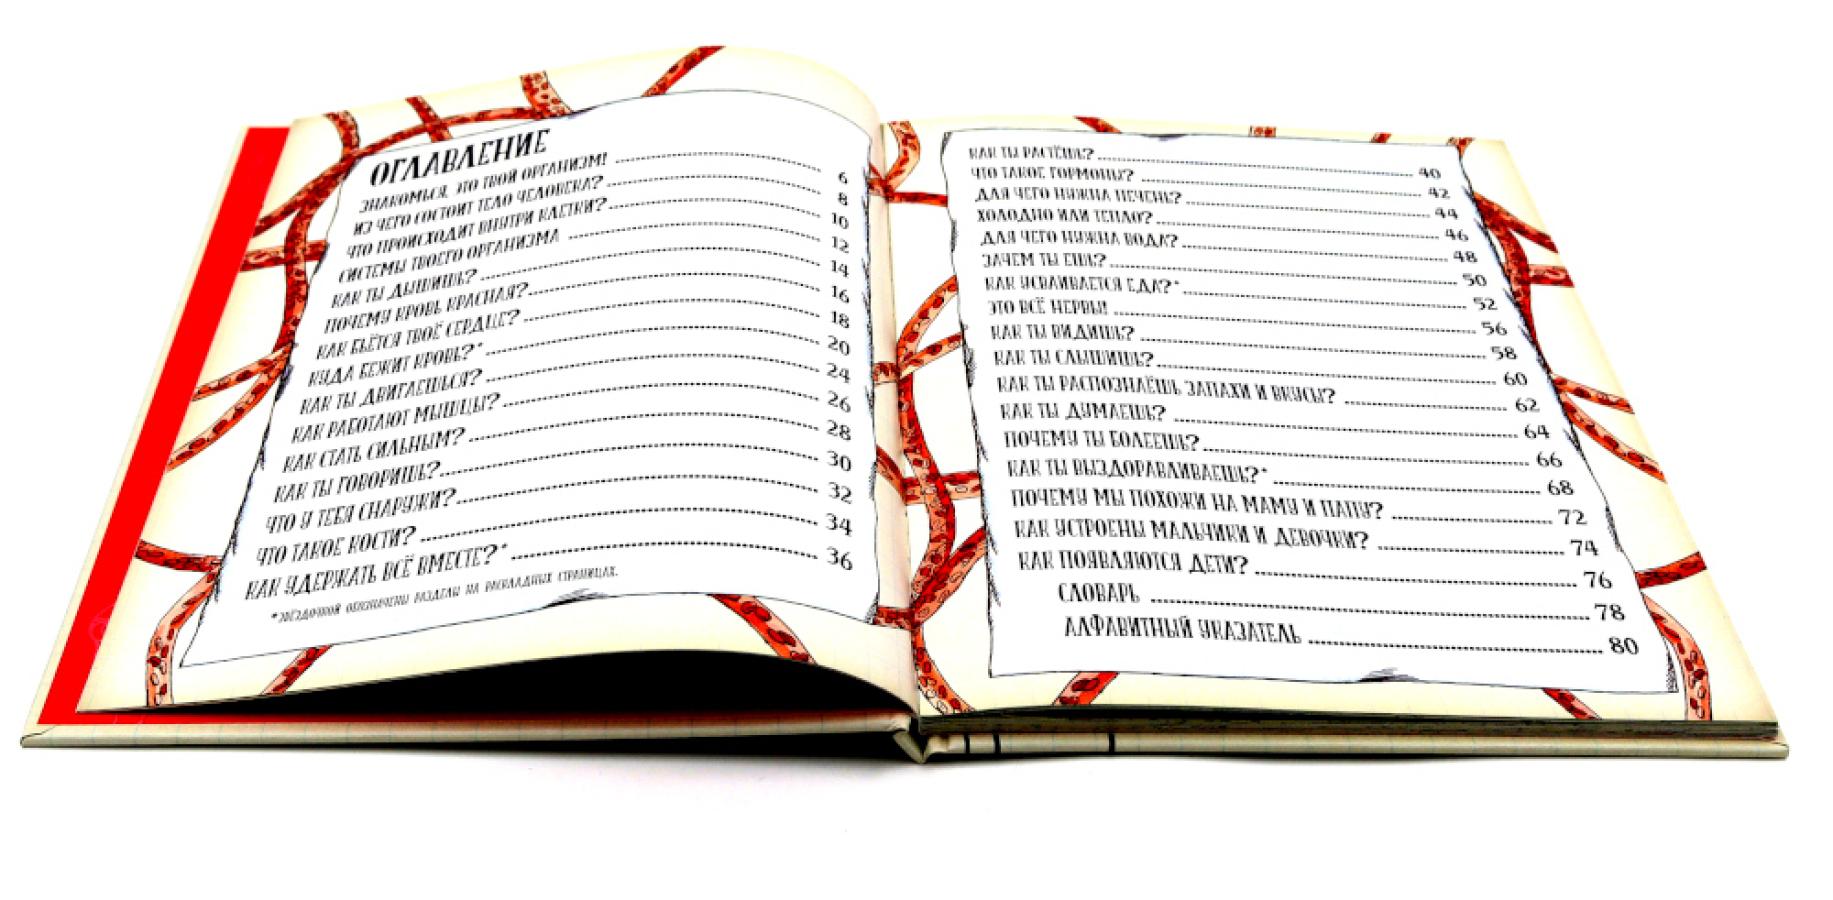 ОГЛАВЛЕНИЕ
ЗНАКОМЬСЯ, ЭТО ТВОЙ ОРГАНИЗМ! 6
ИЗ ЧЕГО СОСТОИТ ТЕЛО ЧЕЛОВЕКА? 8
ЧТО ПРОИСХОДИТ ВНУТРИ КЛЕТКИ? 10
СИСТЕМЫ ТВОЕГО ОРГАНИЗМА 12
КАК ТЫ ДЫШИШЬ? 14
ПОЧЕМУ КРОВЬ КРАСНАЯ? 16
КАК БЬЁТСЯ ТВОЁ СЕРДЦЕ? 18
КУДА БЕЖИТ КРОВЬ?* 20
КАК ТЫ ДВИГАЕШЬСЯ? 24
КАК РАБОТАЮТ МЫШЦЫ? 26
КАК СТАТЬ СИЛЬНЫМ? 28
КАК ТЫ ГОВОРИШЬ? 30
ЧТО У ТЕБЯ СНАРУЖИ? 32
ЧТО ТАКОЕ КОСТИ? 34
КАК УДЕРЖАТЬ ВСЁ ВМЕСТЕ?* 36
*ЗВЁЗДОЧКОЙ ОБОЗНАЧЕНЫ РАЗДЕЛЫ НА РАСКЛАДНЫХ СТРАНИЦАХ.
КАК ТЫ РАСТЁШЬ? 40
ЧТО ТАКОЕ ГОРМОНЫ? 42
ДЛЯ ЧЕГО НУЖНА ПЕЧЕНЬ? 44
ХОЛОДНО ИЛИ ТЕПЛО? 46
ДЛЯ ЧЕГО НУЖНА ВОДА? 48
ЗАЧЕМ ТЫ ЕШЬ? 50
КАК УСВАИВАЕТСЯ ЕДА?* 52
ЭТО ВСЁ НЕРВЫ! 56
КАК ТЫ ВИДИШЬ? 58
КАК ТЫ СЛЫШИШЬ? 60
КАК ТЫ РАСПОЗНАЁШЬ ЗАПАХИ И ВКУСЫ? 62
КАК ТЫ ДУМАЕШЬ? 64
ПОЧЕМУ ТЫ БОЛЕЕШЬ? 66
КАК ТЫ ВЫЗДОРАВЛИВАЕШЬ?* 68
ПОЧЕМУ МЫ ПОХОЖИ НА МАМУ И ПАПУ? 72
КАК УСТРОЕНЫ МАЛЬЧИКИ И ДЕВОЧКИ? 74
КАК ПОЯВЛЯЮТСЯ ДЕТИ? 76
СЛОВАРЬ 78
АЛФАВИТНЫЙ УКАЗАТЕЛЬ 80